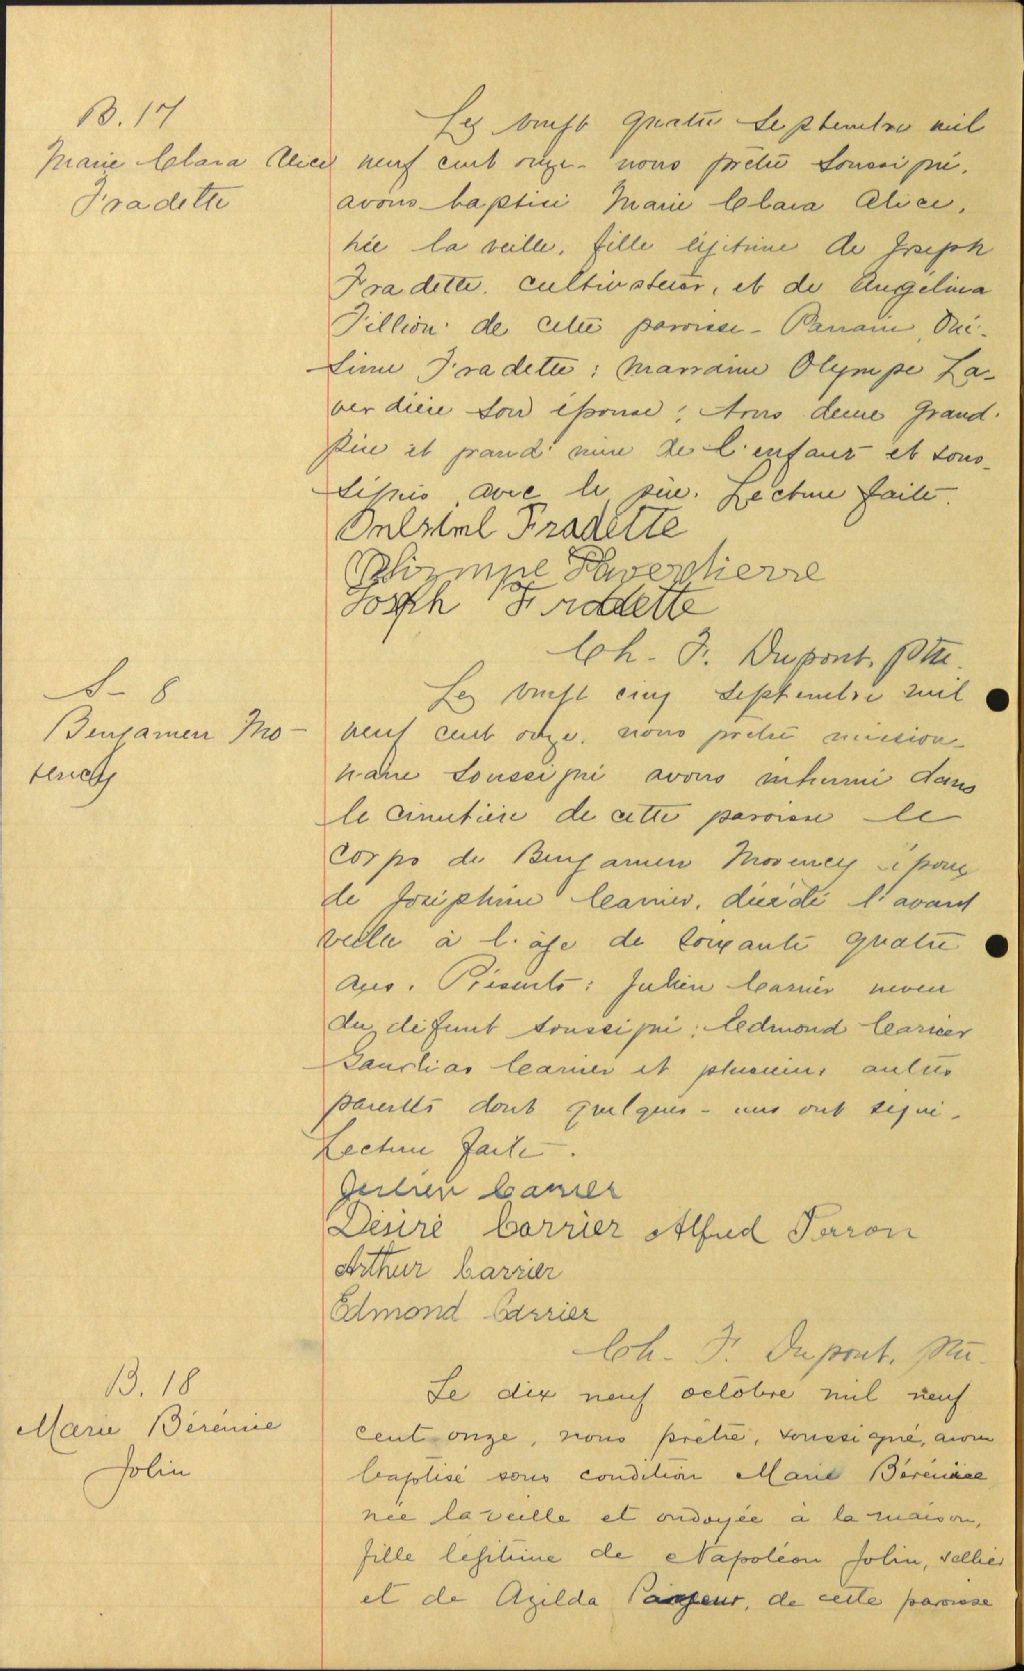 B. 17
Marie Clara Alice
Fradette
Le vingt quatre septembre mil
neuf cent onze nous prêtre soussigné,
avons baptisé Marie Clara Alice,
née la veille, fille légitime de Joseph
Fradette, cultivateur, et de Angélina
Fillion de cette paroisse - Parrain Oné-
sime Fradette ; marraine Olympe La-
verdière son épouse ; tous deux grand-
père et grand'mère de l'enfant et sous-
signés avec le père. Lecture faite.
Onésime Fradette
Olympe Laverdierre
Joseph Fradette
Ch. F. Dupont, Ptre.
S- 8
Benjamen Mo-
rency
Le vingt cinq septembre mil
neuf cent onze, nous prêtre mission-
naire soussigné avons inhumé dans
le cimetière de cette paroisse le
corps de Benjamen Morency époux
de Joséphine Carrier, décédé l'avant
veille à l'âge de soixante quatre
ans. Présents : Julien Carrier neveu
du défunt soussigné ; Edmond Carrier
Carrier et plusieurs autres
parents dont quelques-uns ont signé.
Lecture faite.
Julien Carrier
Désiré Carrier Alfred Perron
Arthur Carrier
Edmond Carrier
Ch- F. Dupont, Ptre.
B. 18
Marie Bérénice
Jolin
Le dix neuf octobre mil neuf
cent onze, nous prêtre, soussigné, avons
baptisé sous condition Marie Bérénice
née la veille et ondoyée à la maison,
fille légitime de Napoléon Jolin, sellier
et de Azilda Payeur, de cette paroisse